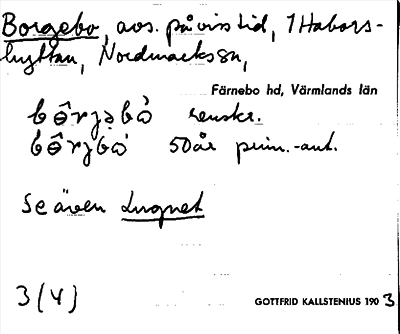 Borgebo, avs. på viss tid, 1 Habors-
hyttan, Nordmarks sn,
Färnebo hd, Värmlands län
renskr.
50 år prim.-ant.
Se även Lugnet
3 (4)
GOTTFRID KALLSTENIUS 1903